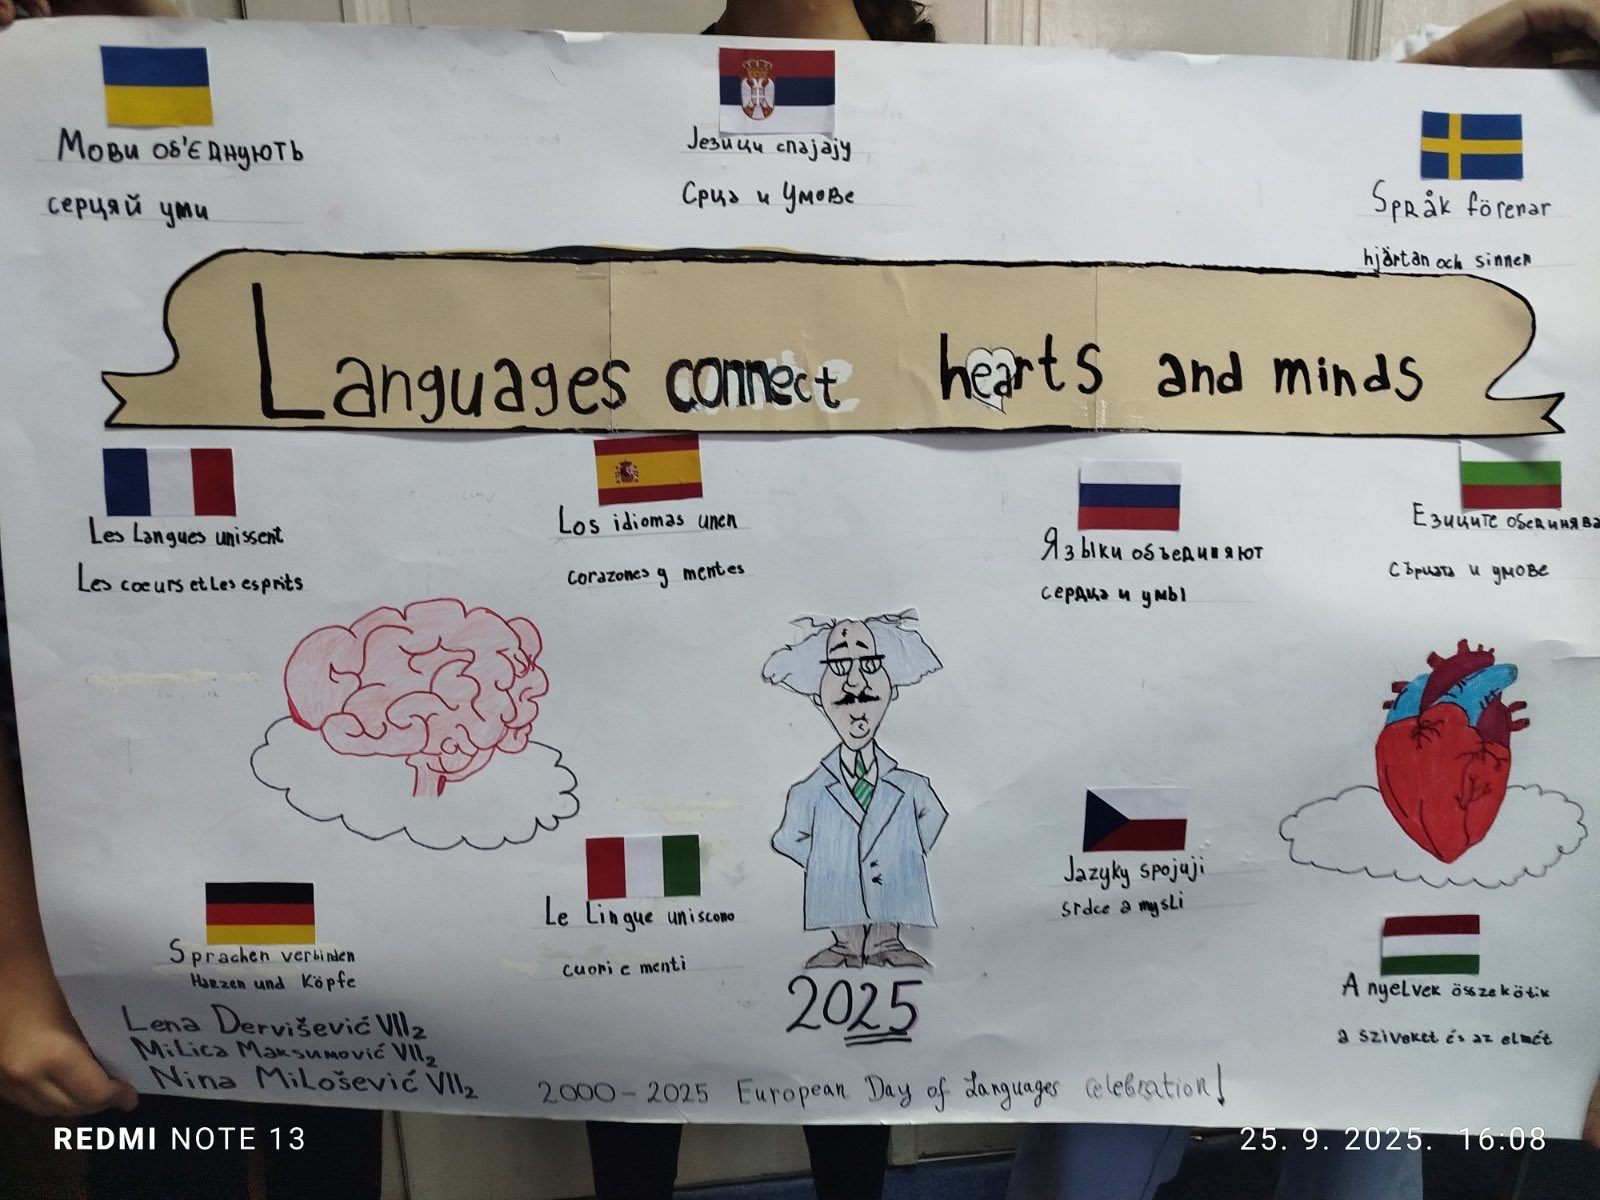 Мови об'єднують
серцяй уми
Језици спајају
Срца и Умове
Språk förenar
hjärtan och sinnen
Languages connect hearts and minds
Les Langues unissent
Les coeurs et Les esprits
Los idiomas unen
corazones y mentes
Языки объединяют
сердца и умы
Езиците обединява
сърцата и умове
Sprachen verbinden
Herzen und Köpfe
Le Lingue uniscono
cuori e menti
Jazyky spojuji
srdce a mysli
A nyelvek összekötik
a sziveket és az elmét
2025
Lena Dervišević VII2
Milica Maksumović VII2
Nina Milošević VII2
2000-2025 European Day of Languages celebration!
REDMI NOTE 13
25. 9. 2025. 16:08